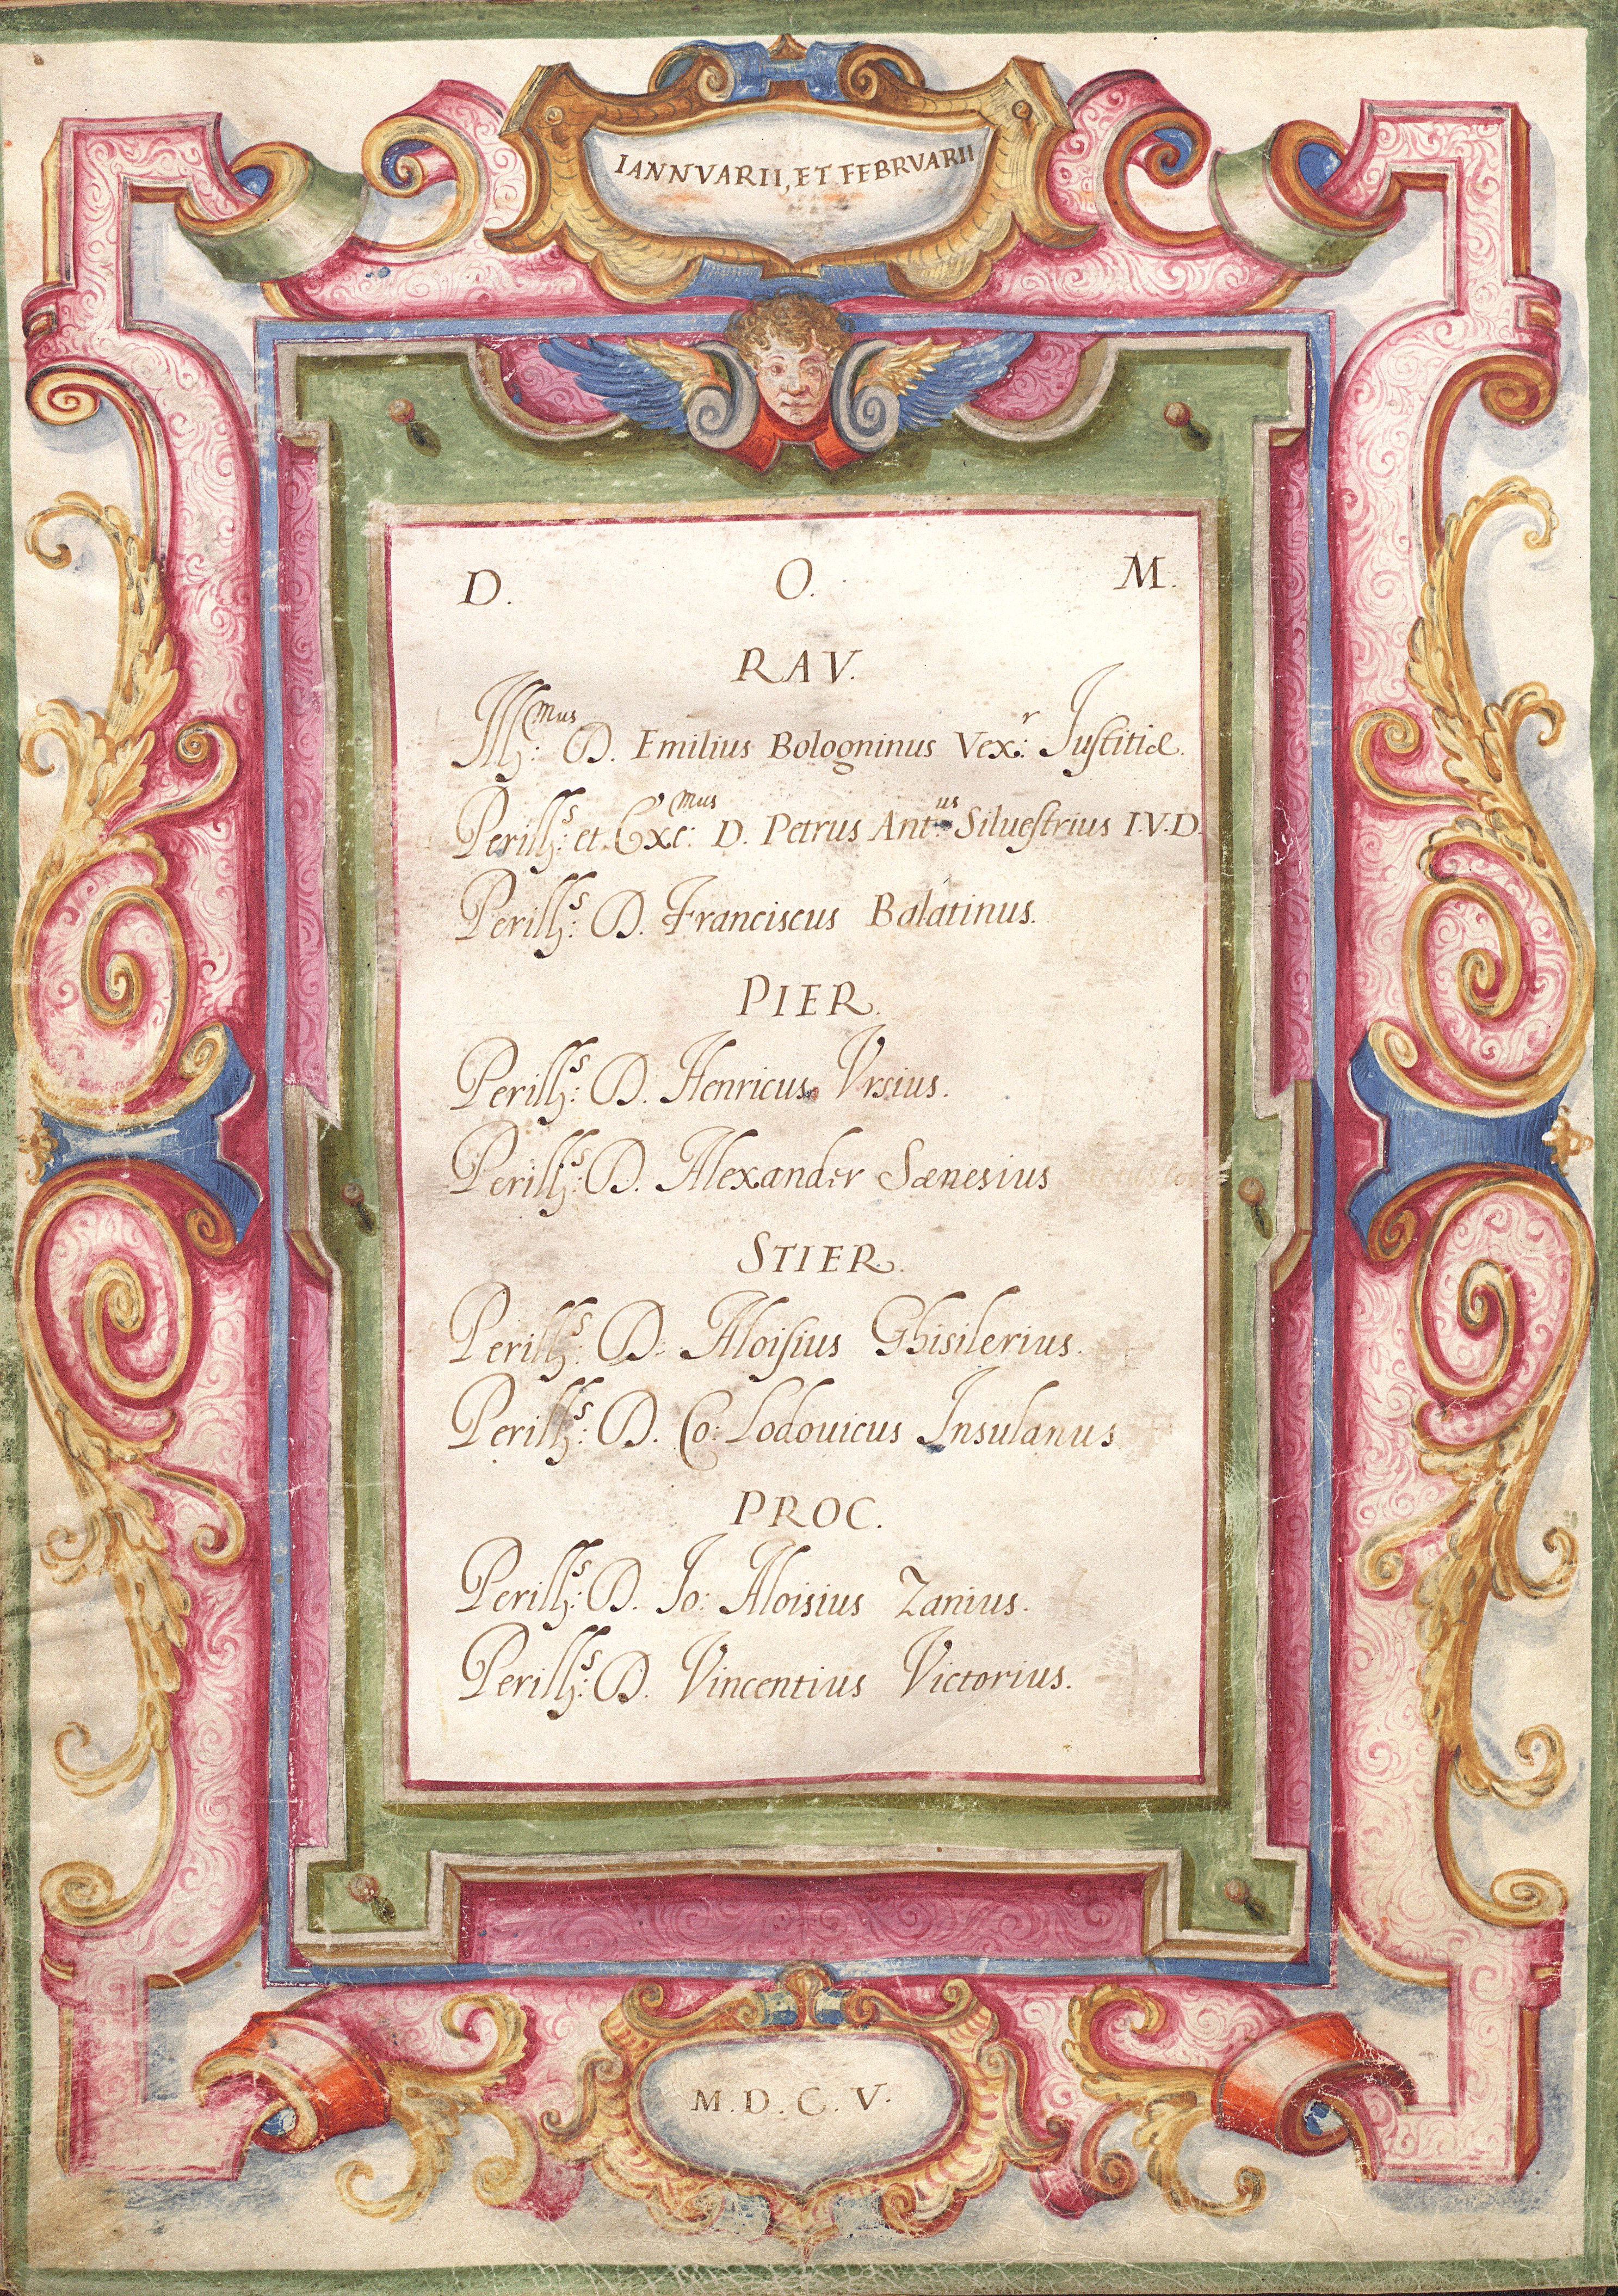 IANNVARII, ET FEBRVARII
D. O. M.
RAV.
Ill:mus D. Emilius Bologninus Vex:r Iuſtitiæ.
Perill:s et Exc:mus D. Petrus Ant:us Silueſtrius I.V.D.
Perill:s D. Franciscus Balatinus.
PIER.
Perill:s D. Henricus Vrsius.
Perill:s D. Alexander Sænesius
STIER.
Perill:s D. Aloiſius Ghisilerius.
Perill:s D. Co: Lodouicus Insulanus
PROC.
Perill:s D. Io: Aloisius Zanius.
Perill:s D. Vincentius Victorius.
M.D.C.V.